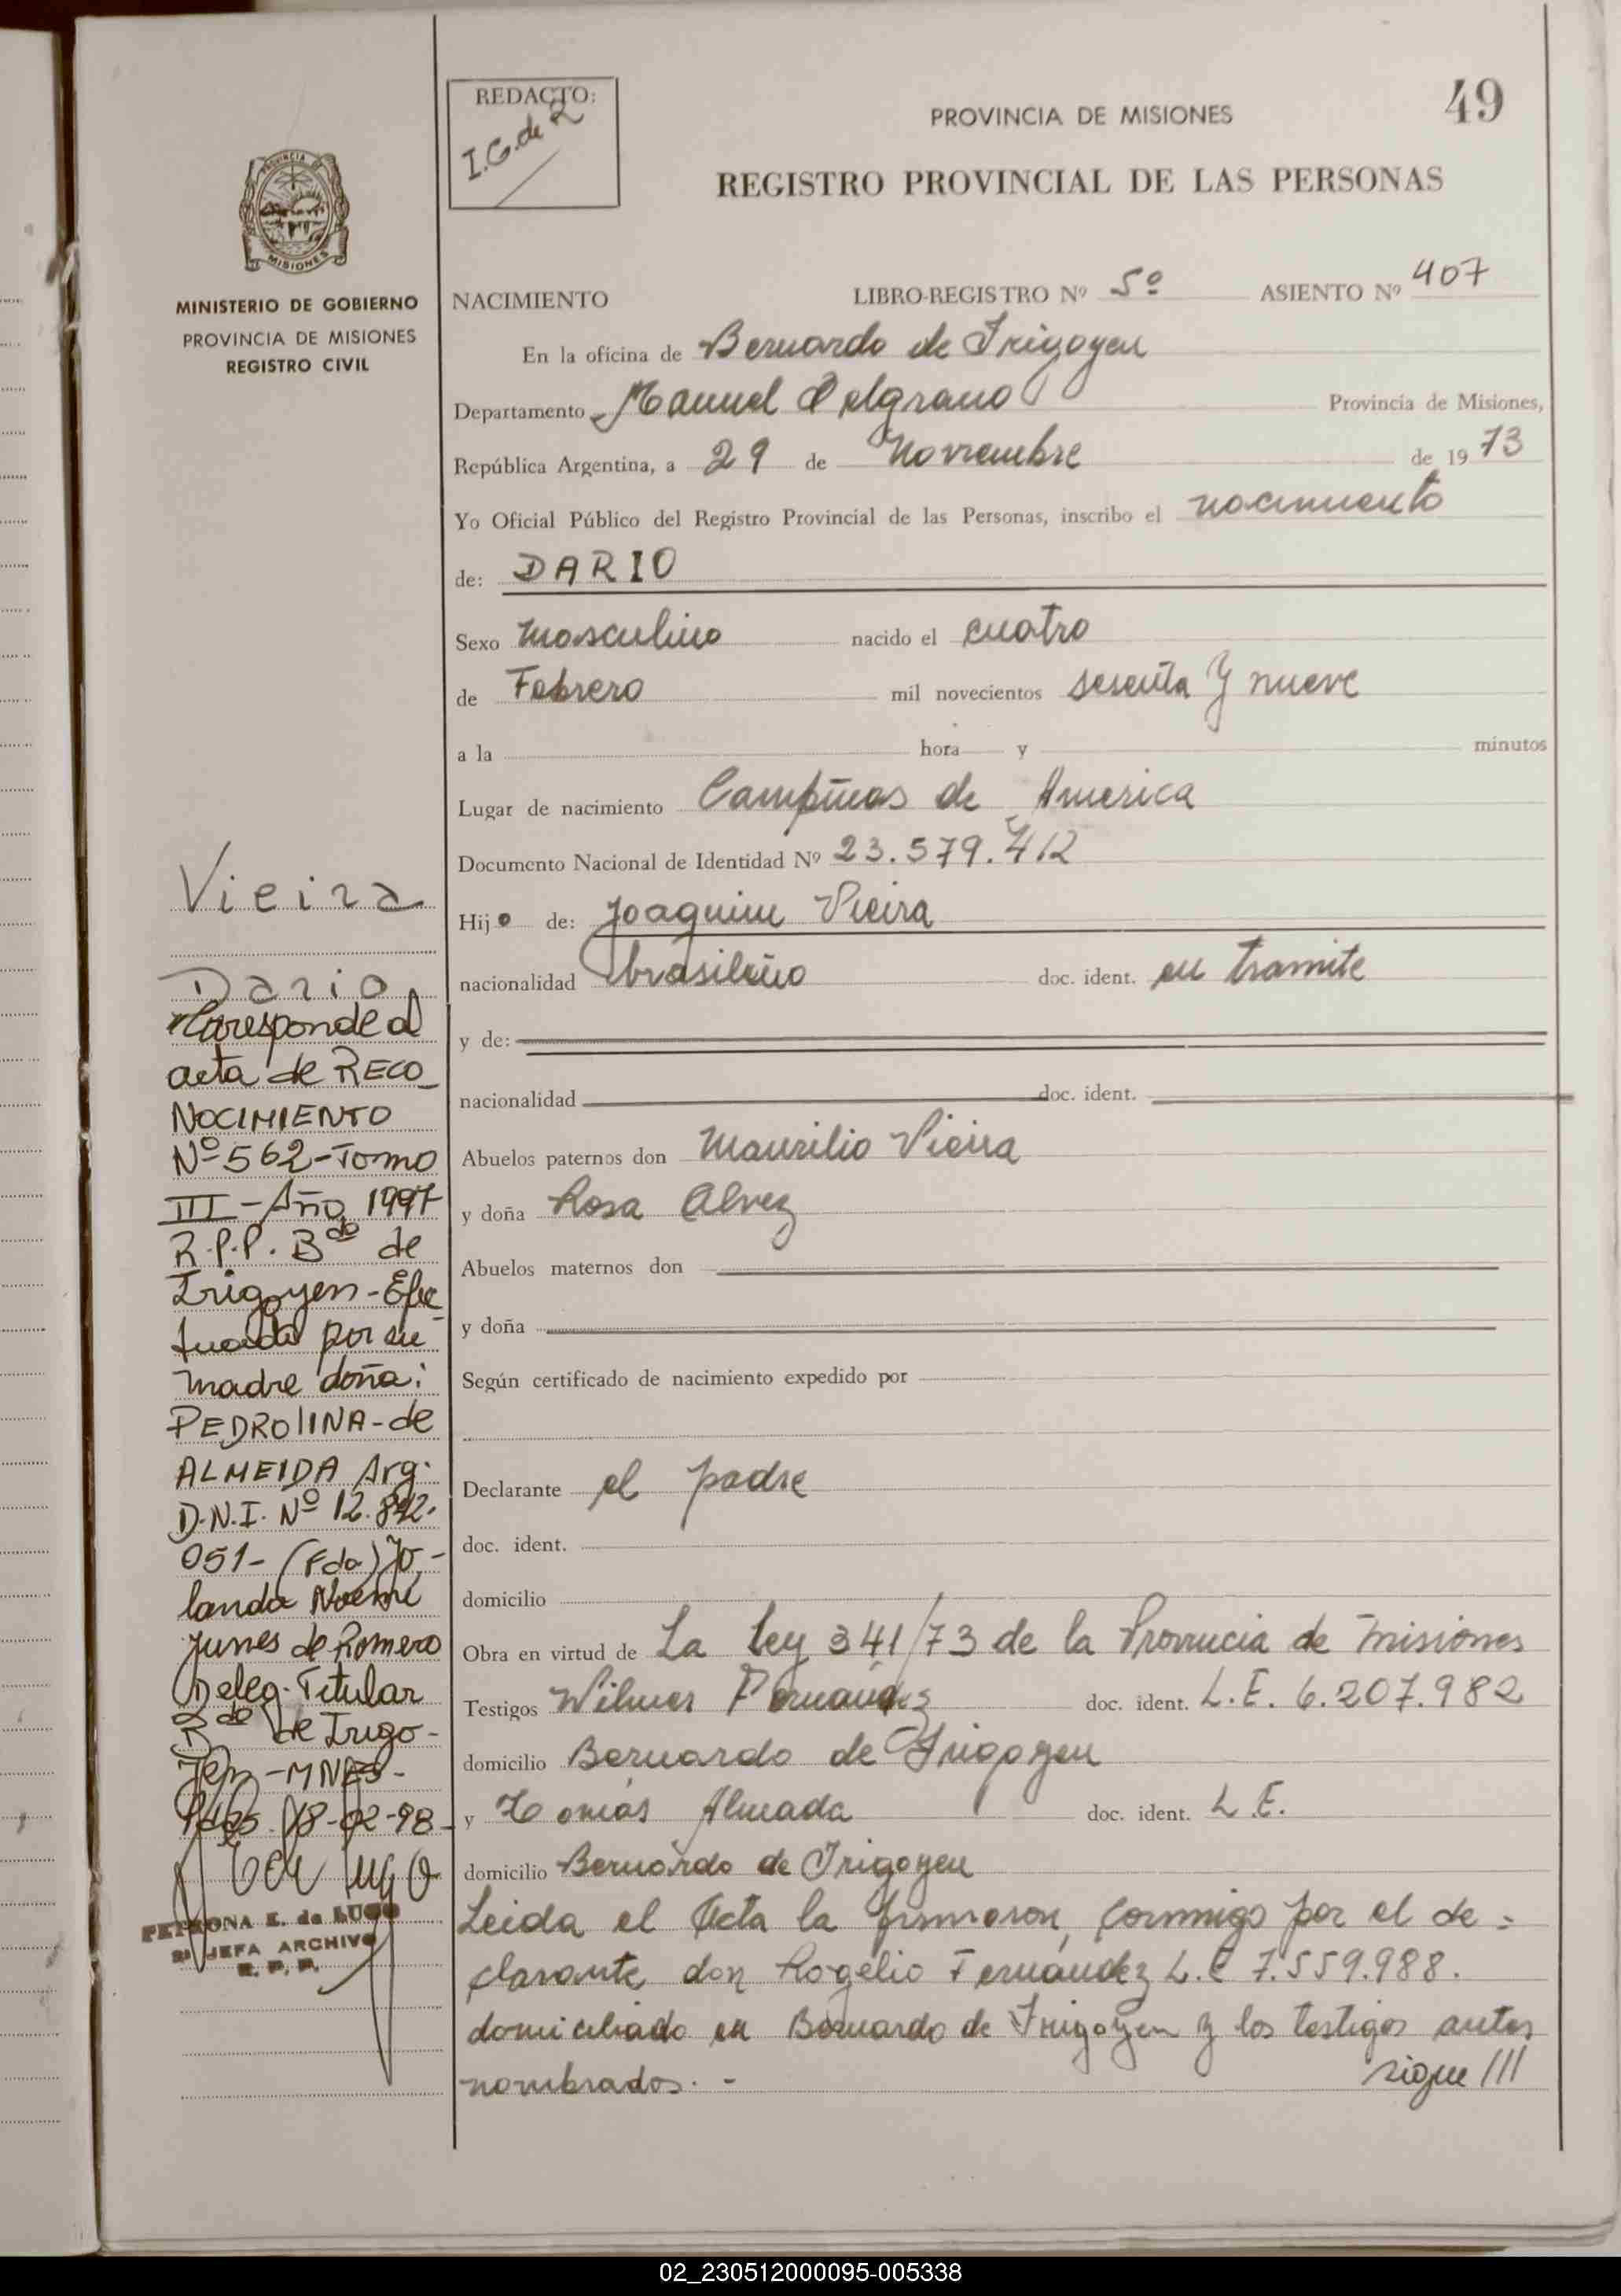 REDACTO:
I.G. de R
PROVINCIA DE MISIONES
49
REGISTRO PROVINCIAL DE LAS PERSONAS
PROVINCIA DE
MISIONES
MINISTERIO DE GOBIERNO
PROVINCIA DE MISIONES
REGISTRO CIVIL
NACIMIENTO LIBRO-REGISTRO Nº 5º ASIENTO Nº 407
En la oficina de Bernardo de Irigoyen
Departamento Manuel Belgrano Provincia de Misiones,
República Argentina, a 29 de Noviembre de 1973
Yo Oficial Público del Registro Provincial de las Personas, inscribo el nacimiento
de: DARIO
Sexo masculino nacido el cuatro
de Febrero mil novecientos sesenta y nueve
a la hora y minutos
Lugar de nacimiento Campinas de America
Documento Nacional de Identidad Nº 23.579.412
Hijo de: Joaquim Vieira
nacionalidad brasileño doc. ident. en tramite
y de:
nacionalidad doc. ident.
Abuelos paternos don Maurilio Vieira
y doña Rosa Alvez
Abuelos maternos don
y doña
Según certificado de nacimiento expedido por
Declarante el padre
doc. ident.
domicilio
Obra en virtud de La ley 341/73 de la Provincia de Misiones
Testigos Wilmar Fernandez doc. ident. L.E. 6.207.982
domicilio Bernardo de Irigoyen
y Tomás Almada doc. ident. L.E.
domicilio Bernardo de Irigoyen
Leida el Acta la firmaron, conmigo por el de=
clarante don Rogelio Fernández L.E 7.559.988.
domiciliado en Bernardo de Irigoyen y los testigos antes
nombrados. -
sigue ///
Vieira
Dario
Corresponde al
acta de RECO_
NOCIMIENTO
Nº 562-Tomo
III - Año 1997
R.P.P. Bdo de
Irigoyen - Efec
tuada por su
madre doña:
PEDROLINA - de
ALMEIDA Arg.
D.N.I. Nº 12.842.
051- (Fdo) Yo_
landa Noemi
Junes de Romero
Deleg. Titular
Bdo de Irigo-
yen - MNES -
Pdas. 18-02-98-
PETRONA E. de LUGO
2ª JEFA ARCHIVO
R. P. P.
02_230512000095-005338